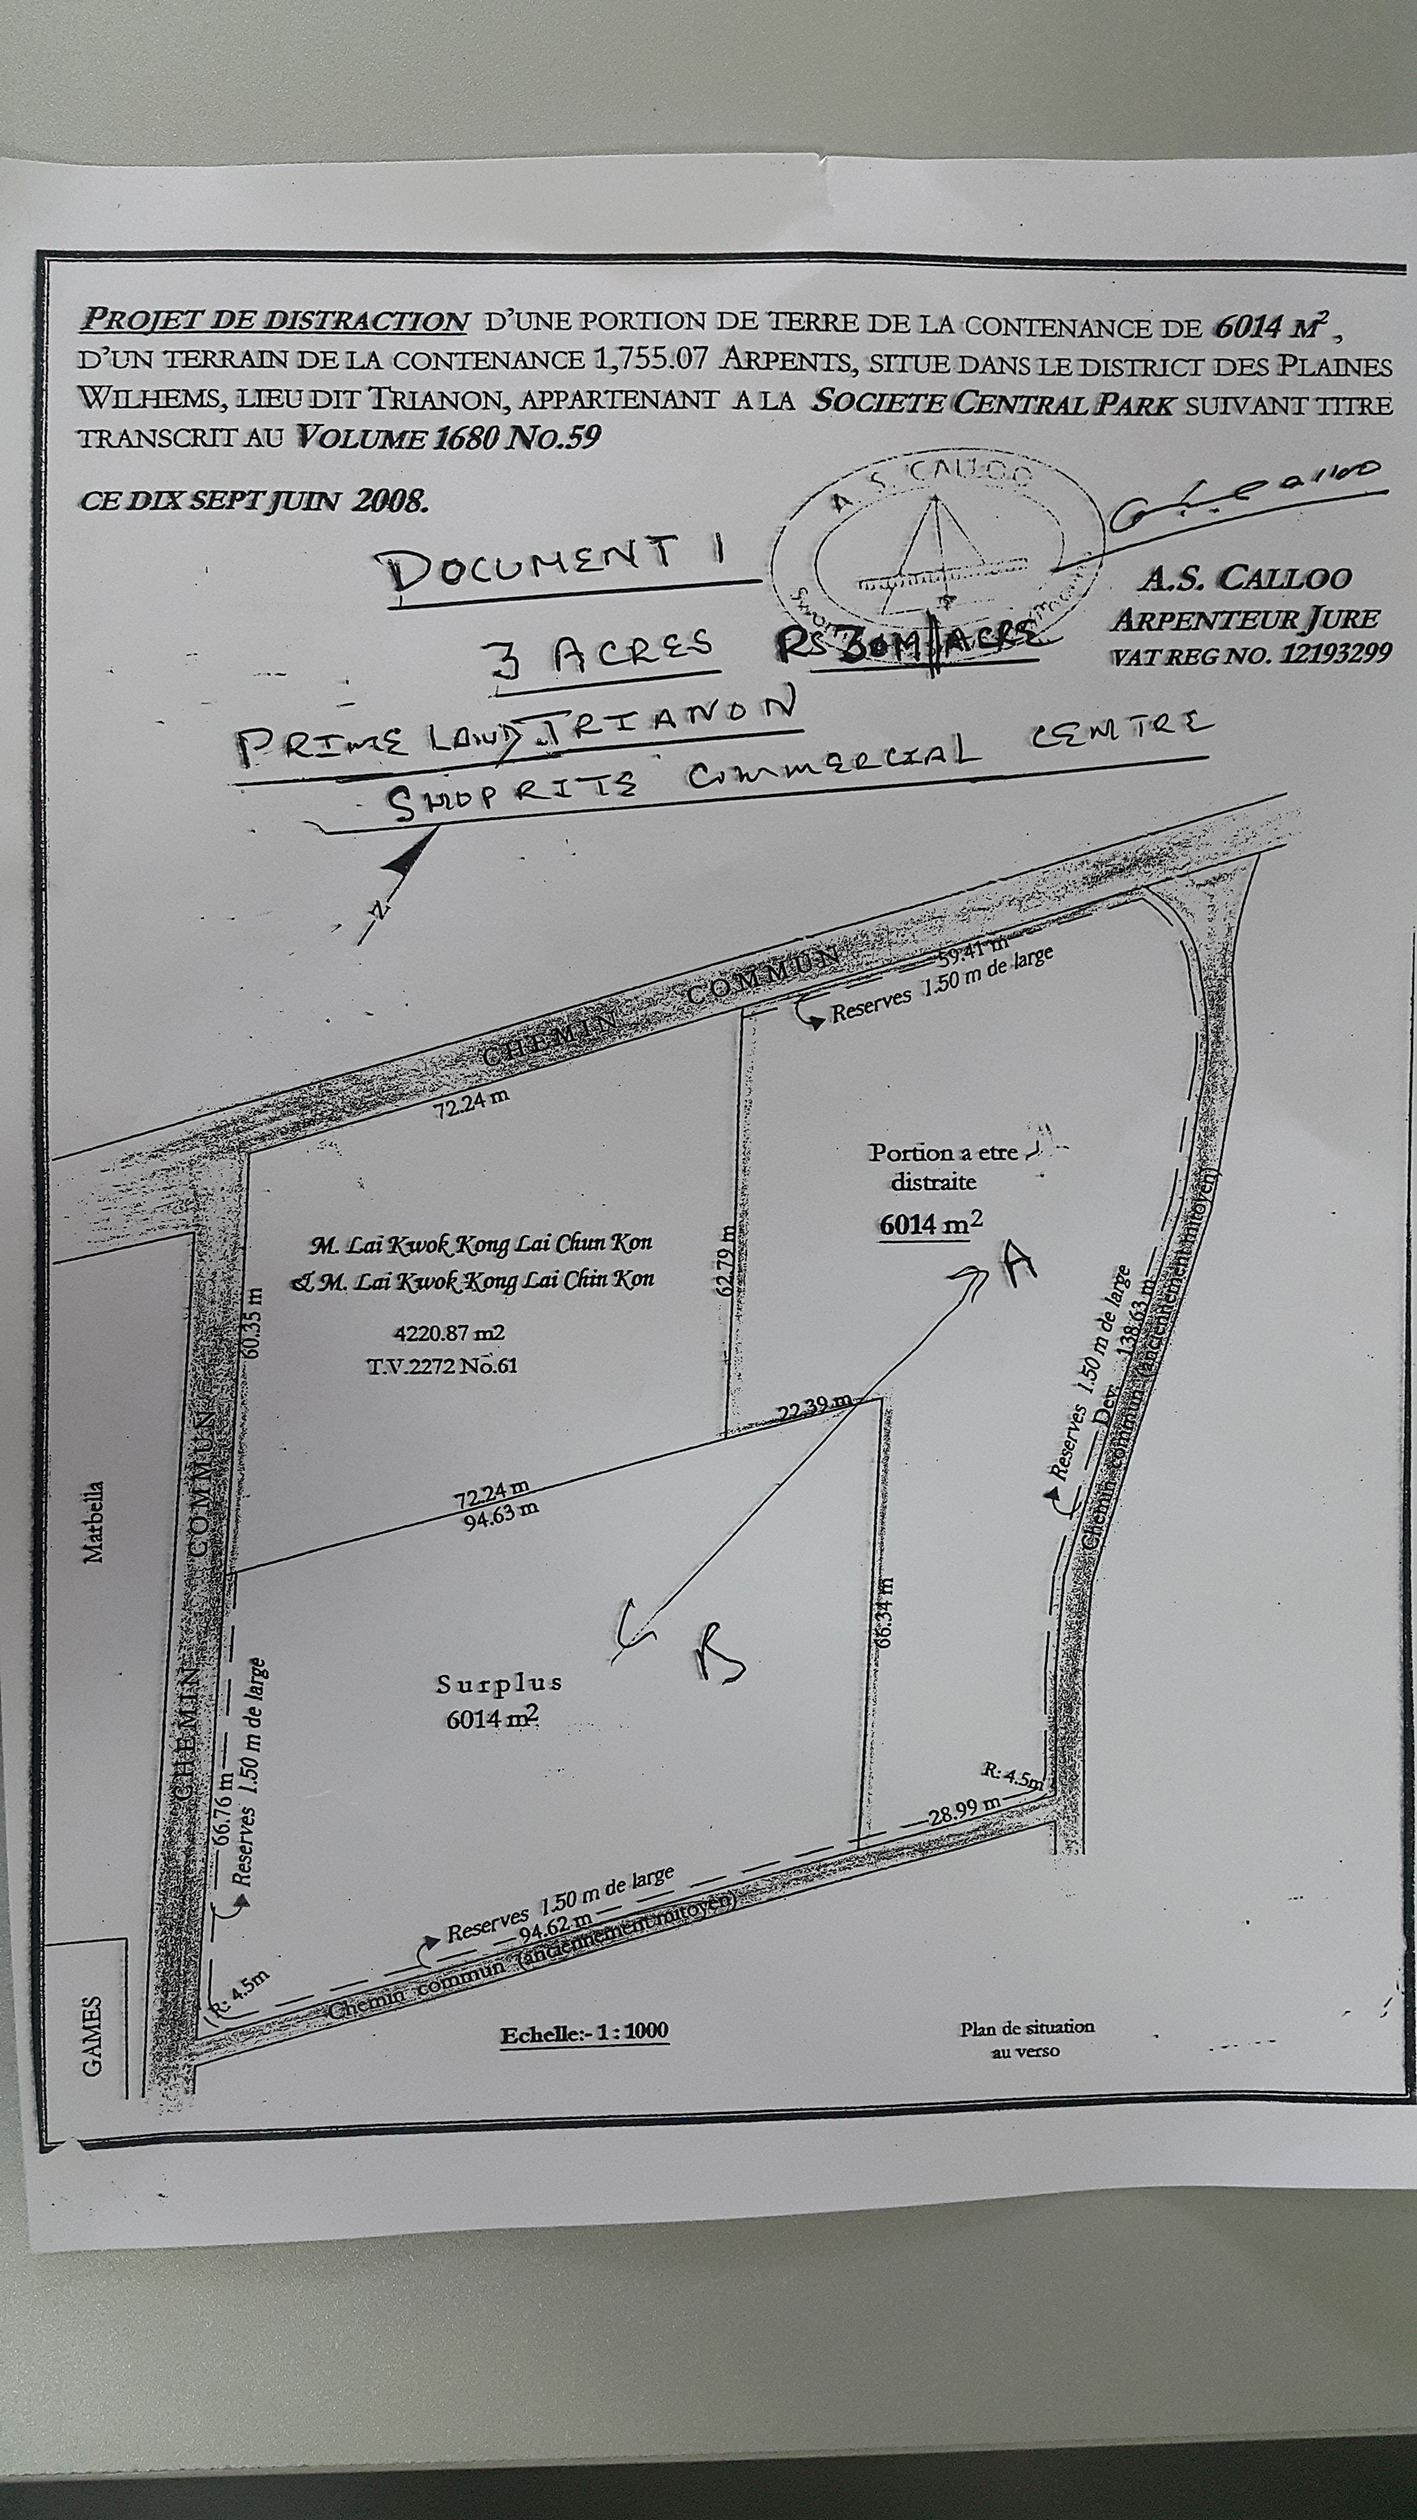 PROJET DE DISTRACTION D'UNE PORTION DE TERRE DE LA CONTENANCE DE 6014 M²,
D'UN TERRAIN DE LA CONTENANCE 1,755.07 ARPENTS, SITUE DANS LE DISTRICT DES PLAINES
WILHEMS, LIEU DIT TRIANON, APPARTENANT A LA SOCIETE CENTRAL PARK SUIVANT TITRE
TRANSCRIT AU VOLUME 1680 NO.59
CE DIX SEPT JUIN 2008.
A. S. CALLOO
DOCUMENT 1
A.S. CALLOO
ARPENTEUR JURE
VAT REG NO. 12193299
3 ACRES RS 30M/ACRE
PRIME LAND TRIANON
SHOPRITE COMMERCIAL CENTRE
N
CHEMIN COMMUN
59.41 m
Reserves 1.50 m de large
72.24 m
Portion a etre
distraite
6014 m²
A
M. Lai Kwok Kong Lai Chun Kon
& M. Lai Kwok Kong Lai Chin Kon
4220.87 m2
T.V.2272 No.61
60.35 m
62.79 m
22.39 m
Reserves 1.50 m de large
Dev. 138.63 m
Chemin commun (anciennement mitoyen)
72.24 m
94.63 m
Marbella
CHEMIN COMMUN
66.34 m
B
Surplus
6014 m²
66.76 m
Reserves 1.50 m de large
R: 4.5m
28.99 m
Reserves 1.50 m de large
94.62 m
Chemin commun (anciennement mitoyen)
R: 4.5m
GAMES
Echelle:- 1 : 1000
Plan de situation
au verso